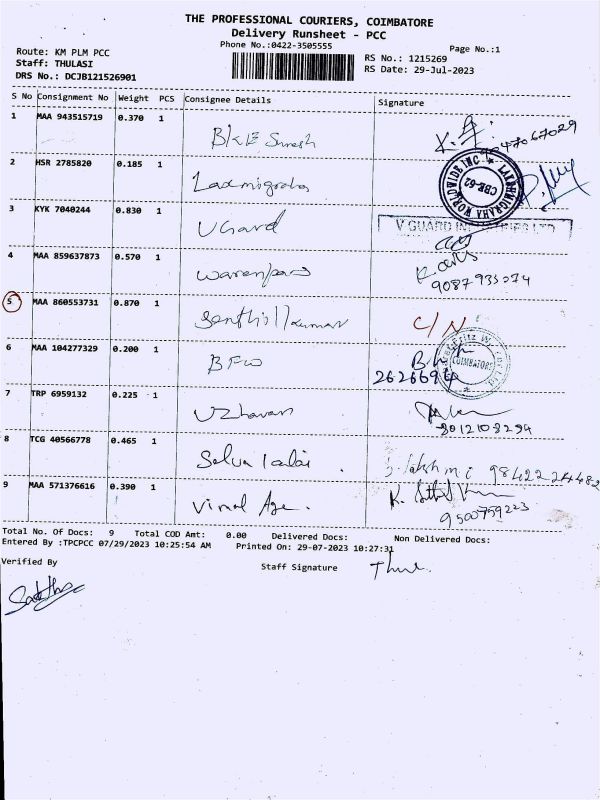 THE PROFESSIONAL COURIERS, COIMBATORE
Delivery Runsheet - PCC
Phone No.:0422-3505555
Page No.:1
Route: KM PLM PCC
Staff: THULASI
DRS No.: DCJB121526901
RS No.: 1215269
RS Date: 29-Jul-2023
S No Consignment No Weight PCS Consignee Details Signature
1 MAA 943515719 0.370 1 BKE Suresh
2 HSR 2785820 0.185 1 Laxmigraha
WORLDWIDE INC. LAKSHMIGRAHA
CBE-62
3 KYK 7040244 0.830 1 VGuard
V GUARD INDUSTRIES LTD
4 MAA 859637873 0.570 1
9087935074
5 MAA 860553731 0.870 1 Senthil kumar C/N
6 MAA 104277329 0.200 1 BFW
COIMBATORE
7 TRP 6959132 0.225 1 Uzhavan
8012108294
8 TCG 40566778 0.465 1 Selva
9842224482
9 MAA 571376616 0.390 1 Vimal Age.
9500759223
Total No. Of Docs: 9 Total COD Amt: 0.00 Delivered Docs: Non Delivered Docs:
Entered By :TPCPCC 07/29/2023 10:25:54 AM Printed On: 29-07-2023 10:27:31
Verified By
Staff Signature